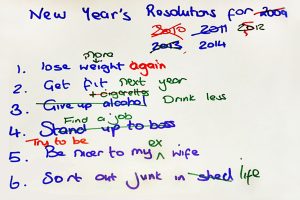 New Year's Resolutions for 2009
2010 2011 2012
2013 2014
more
1. lose weight again
2. Get fit next year
+ cigarettes
3. Give up alcohol Drink less
Find a job
4. Stand up to boss
Try to be ex
5. Be nicer to my ^ wife
6. Sort out junk in shed life